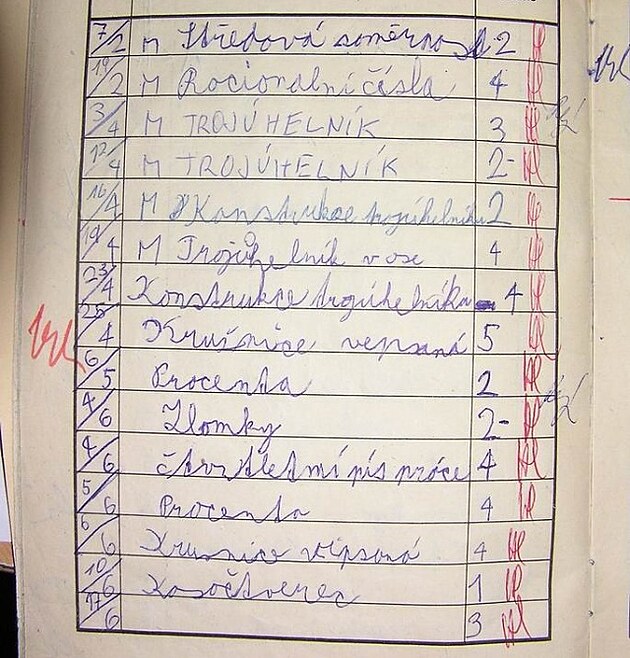 7/2 M Středová souměrnost 2
19/2 M Racionalní čásla 4
3/4 M TROJÚHELNÍK 3
12/4 M TROJÚHELNÍK 2-
16/4 M Konstrukce trojúhelníku 2
19/4 M Trojúhelník v ose 4
23/4 Konstrukce trojúhelníka 4
25/4 Krušnice vepsaná 5
6/5 Procenta 2
4/6 Zlomky 2-
4/6 čtvrtletmí pís práce 4
5/6 Procenta 4
6/6 Krusnice vepsaná 4
10/6 Kosočtverec 1
17/6 3